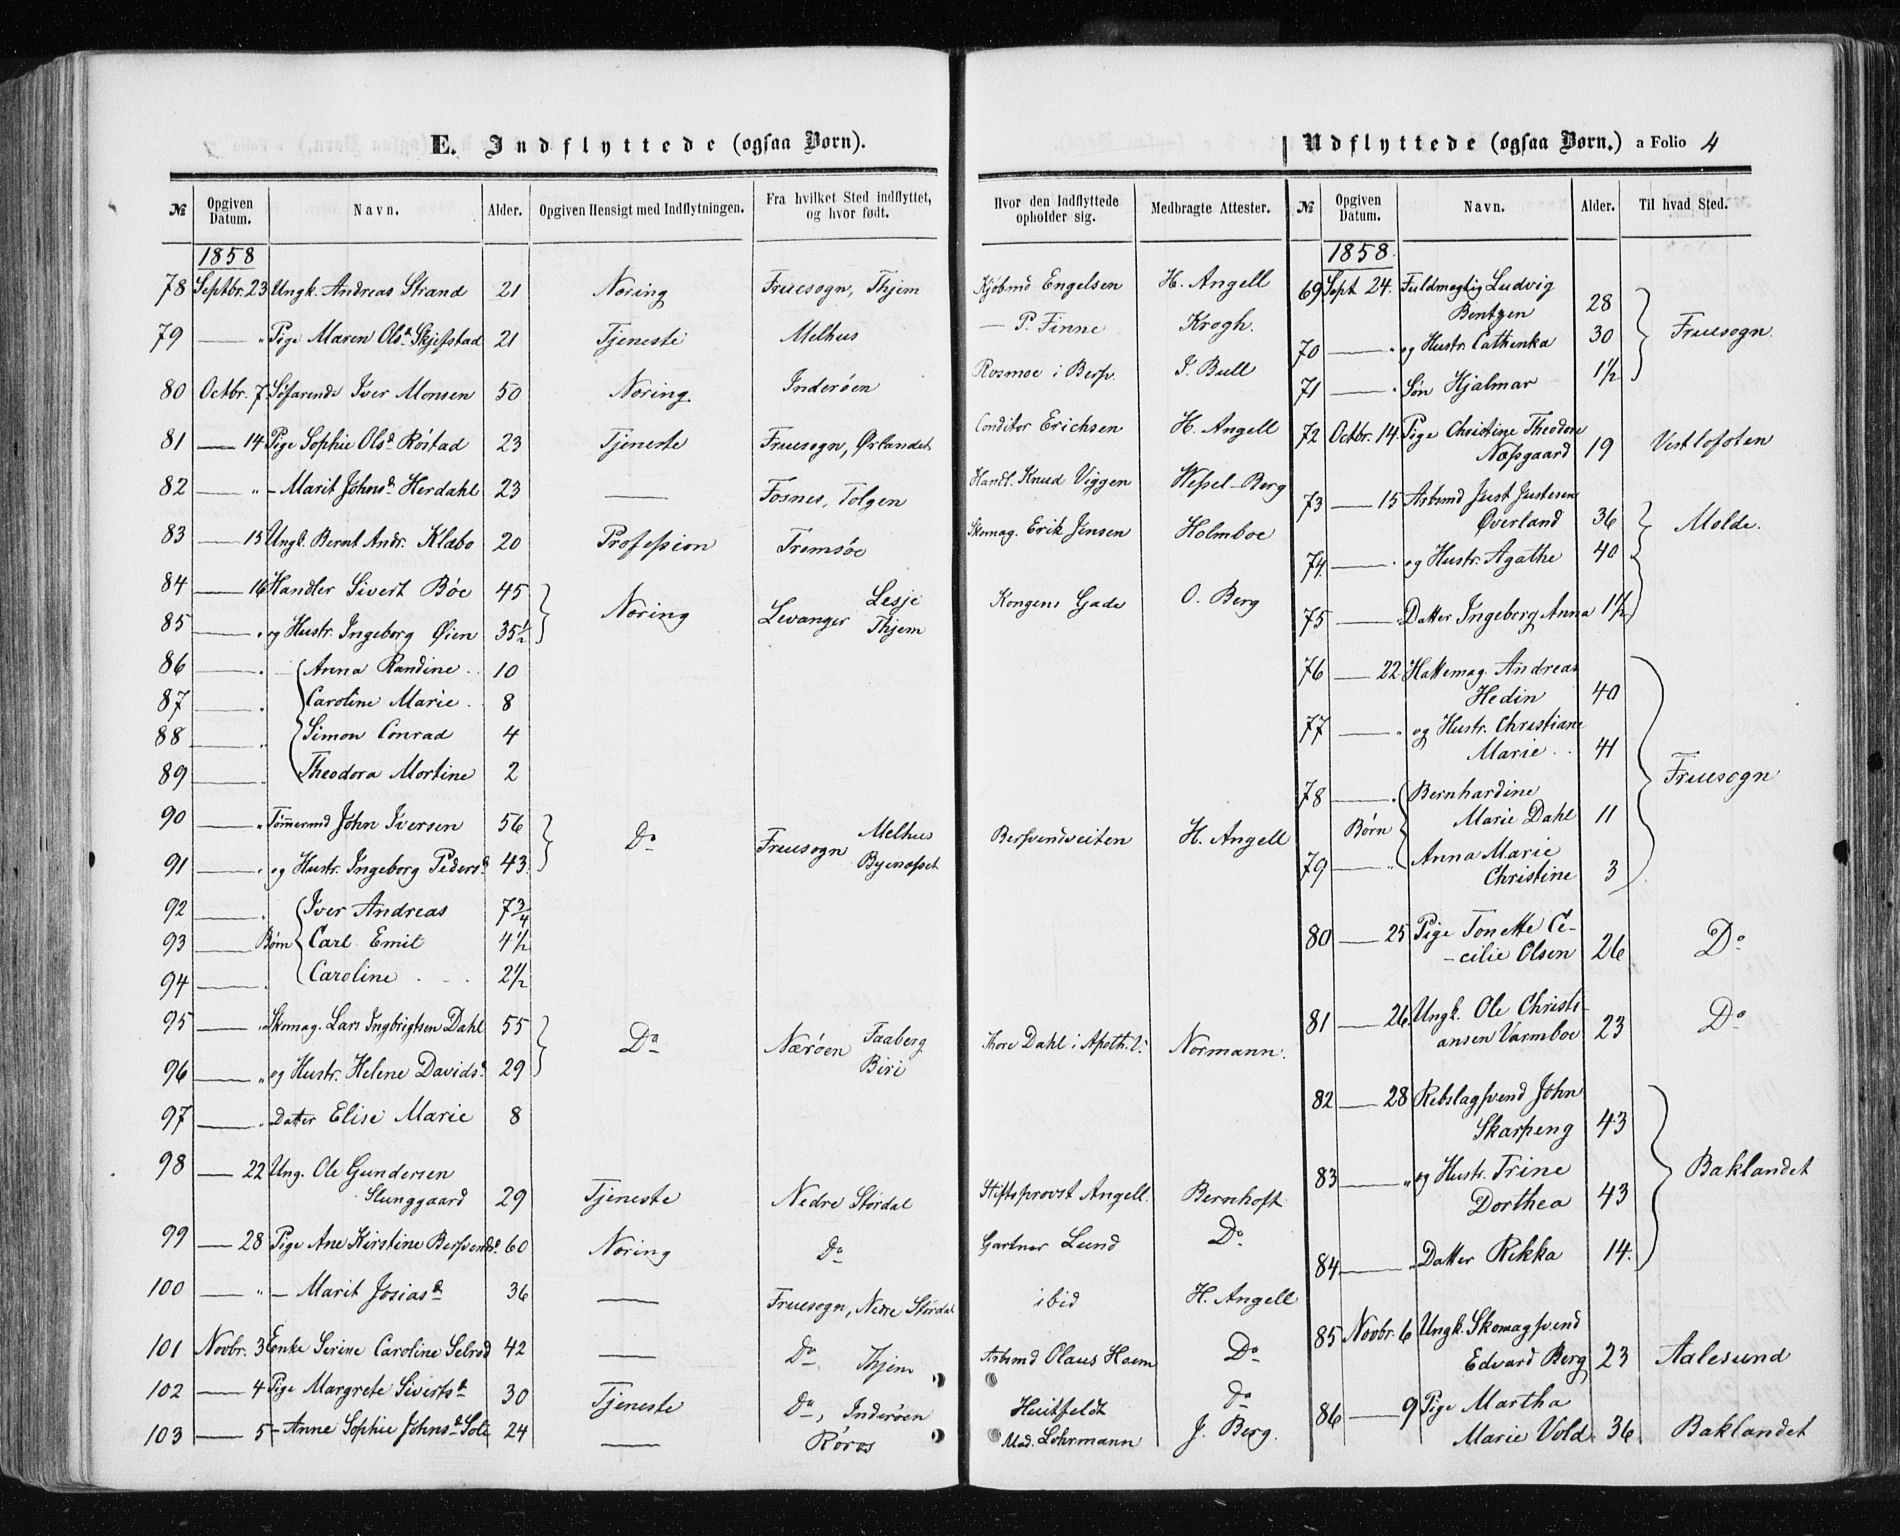 E. Indflyttede (ogsaa Børn).
Udflyttede (ogsaa Børn.) a Folio 4
№ | Opgiven Datum. | Navn. | Alder. | Opgiven Hensigt med Indflytningen. | Fra hvilket Sted indflyttet, og hvor født. | Hvor den Indflyttede opholder sig. | Medbragte Attester.
1858
78 Septbr. 23 Ungk. Andreas Strand 21 Næring Fruesogn, Thjem Kjøbmd Engelsen H. Angell
79 — " Pige Maren Olsd. Skjefstad 21 Tjeneste Melhus — P. Finne Krogh.
80 Octbr. 7 Søfarende Iver Monsen 50 Næring Inderøen Rosmoe i Bersv. J. Bull
81 — 14 Pige Sophie Olsd. Røstad 23 Tjeneste Fruesogn, Ørlandet Conditor Erichsen H. Angell
82 — " — Marit Johnsd. Herdahl 23 — Fosnes, Tolgen Handl. Knud Viggen Wessel-Berg
83 — 15 Ungk. Bernt Andr. Klæbo 20 Profession Tromsøe Skomag. Erik Jensen Holmboe
84 — 16 Handler Sivert Bøe 45 Næring Levanger Lesje Kongens Gade O. Berg
85 — " og Hustr. Ingeborg Øien 35½ Thjem
86 — " Anna Randine 10
87 — " Caroline Marie 8
88 — " Simon Conrad 4
89 — " Theodora Mortine 2
90 — " Tømmermd John Iversen 56 Do Fruesogn Melhus Bersvendveiten H. Angell
91 — " og Hustr. Ingeborg Pedersd. 43 Byenæsset
92 — " Iver Andreas 7¾
93 — Børn Carl Emil 4½
94 — " Caroline 2½
95 — " Skomag. Lars Ingbrigtsen Dahl 55 Do Nærøen Faaberg Thore Dahl i Apoth. V. Normann.
96 — " og Hustr. Helene Davidsd. 29 Biri
97 — " Datter Elise Marie 8
98 — 22 Ung. Ole Gundersen
Slunggaard 29 Tjeneste Nedre Stördal Stiftsprovst Angell. Bernhoft
99 — 28 Pige Ane Kirstine Bersvendsd. 60 Næring Do Gartner Lund Do
100 — " — Marit Josiasd. 36 — Fruesogn, Nedre Stördal ibid H. Angell
101 Novbr. 3 Enke Serine Caroline Selrød 42 — Do Thjem Arbmd Olaus Hoem Do
102 — 4 Pige Margrete Sivertsd. 30 Tjeneste Do, Inderøen Huitfeldt Do
103 — 5 — Anne Sophie Johnsd. 24 — Røros Mad. Lohrmann J. Berg.
№ | Opgiven Datum. | Navn. | Alder. | Til hvad Sted.
1858.
69 Sept 24. Fuldmægtig Ludvig
Bentzen 28 Fruesogn.
70 — " og Hustr. Cathenka 30
71 — " Søn Hjalmar 1½
72 Octbr. 14. Pige Christine Theodore
Næssgaard 19 Vestlofoten
73 — 15 Arbmd Just Justesen
Øverland 36 Molde.
74 — " og Hustr. Agathe 40
75 — Datter Ingeberg Anna 1½
76 — 22 Hattemag. Andreas
Hedin 40 Fruesogn
77 — " og Hustr. Christiane
Marie 41
78 — " Bernhardine
Børn Marie Dahl 11
79 — " Anna Marie
Christine 3
80 — 25 Pige Tonette Ce-
-cilie Olsen 26 Do
81 — 26 Ungk. Ole Christi-
ansen Varmboe 23 Do
82 — 28 Rebslagsvend John
Skarpeng 43 Baklandet
83 — " og Hustr. Trine
Dorthea 43
84 — " Datter Rikka 14.
85 Novbr. 6 Ungk. Skomagsvend
Edvard Berg 23 Aalesund
86 — 9 Pige Martha
Marie Vold 36 Baklandet